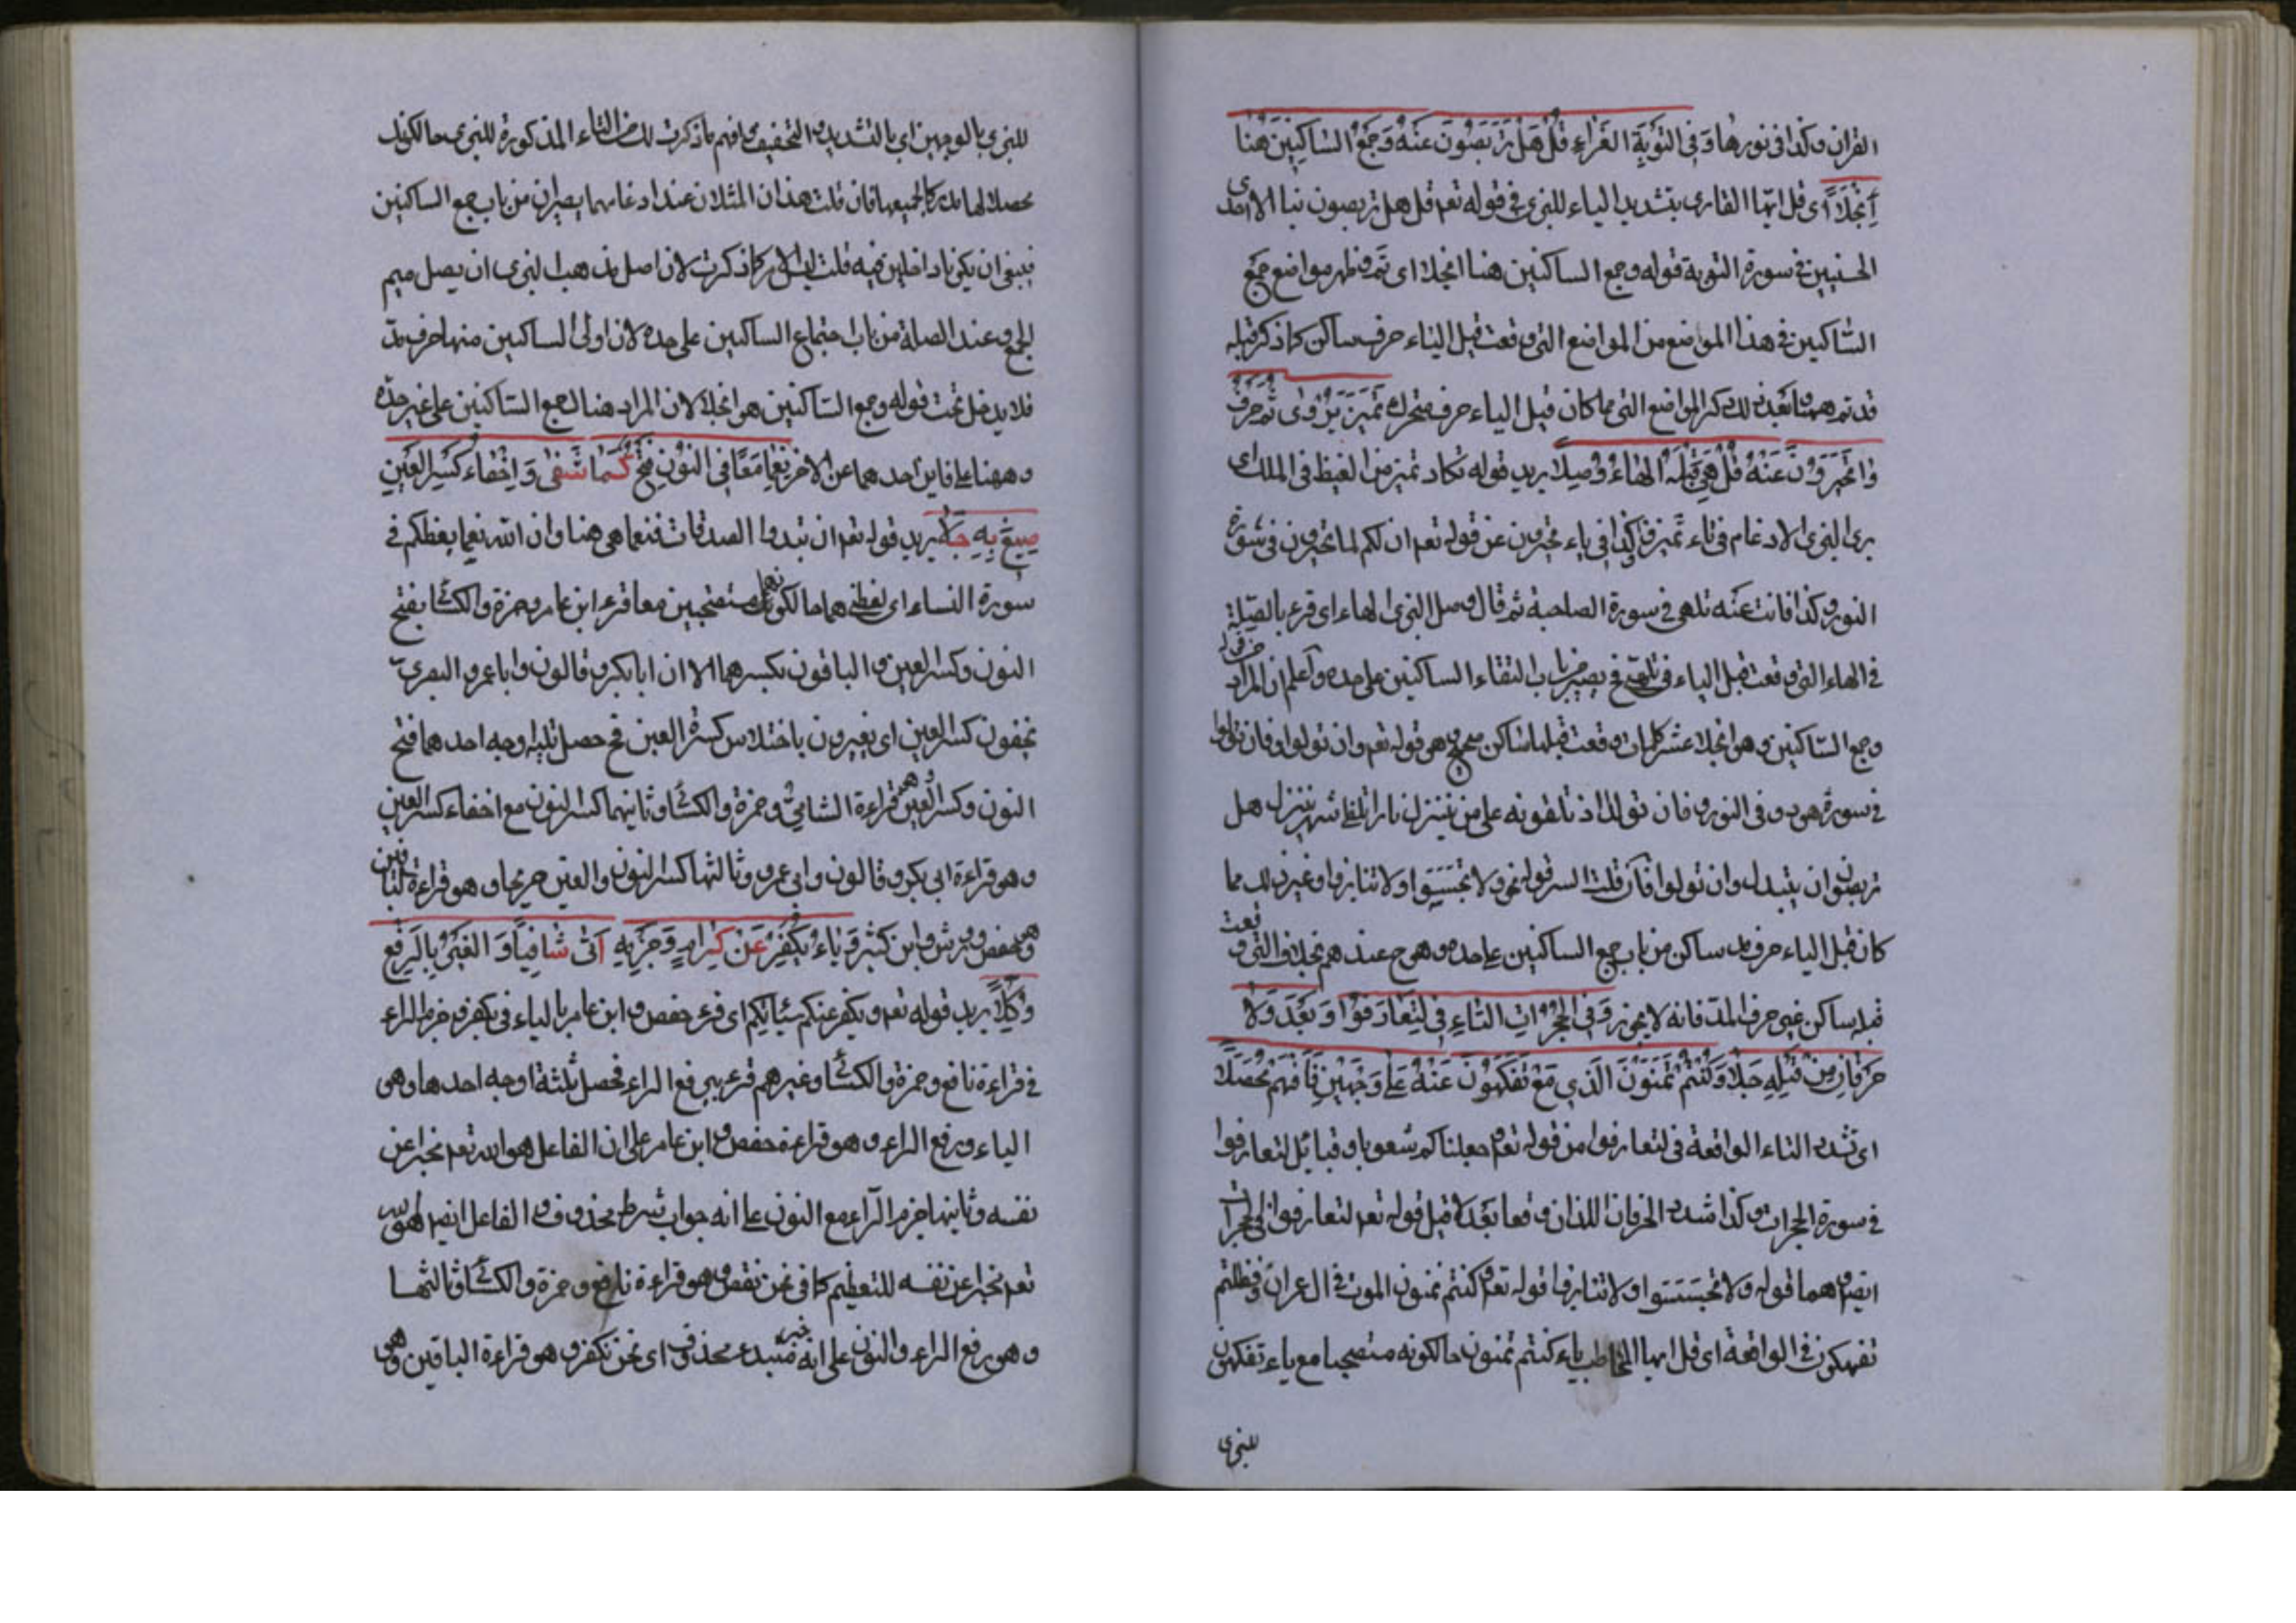 القران وكذا في نورها وَفِي التَّوْبَةِ الغَرَّاءِ قُلْ هَلْ تَرَبَّصُونَ عَنْهُ وَجَمْعُ السَّاكِنَيْنِ هُنَا
اِنْجَلَا اى قل ايها القارى بتشديد الياء للبزى في قوله تعم قل هل تربصون بنا الا احدى
الحسنيين في سورة التوبة قوله وجمع الساكنين هنا انجلا اى تم وظهر مواضع جمع
الساكنين في هذا الموضع من المواضع التى وقعت قبل الياء حرف ساكن كما ذكر قبله
قد تم همنا بعد ذلك ذكر المواضع التى مما كان قبل الياء حرف متحرك تَمَيَّزُ يَرْوِى ثُمَّ حَرْفَ
تَخَيَّرُونَ عَنْهُ قُلْ هِىَ قَبْلَهُ الْهَاءُ وُصِّلَا يريد قوله تكاد تميز من الغيظ في الملك اى
يرى البزى الادغام في تاء تميز وكذا في ياء تخيرون عن قوله تعم ان لكم لما تخيرون في سورة
النور وكذا فانت عنه تلهى في سورة الصاحبة ثم قال وصل البزى الهاء اى قرء بالصلة
في الهاء التى وقعت قبل الياء في تلهى فح يصير من باب التقاء الساكنين على حده واعلم ان المراد من قوله
وجمع الساكنين وهو انجلا عشر كلمات وقعت قبلها ساكن صحيح وهو قوله تعم وان تولوا وفان تولوا
في سورة هود وفي النور و فان تولوا اذ تلقونه على من تنزل نارا تلظى شهر تنزل هل
تربصون وان يتبدل وان تولوا فان قلت السر قوله نحو ولا تجسسوا ولا تنابزوا وغير ذلك مما
كان قبل الياء حرف مد ساكن من باب جمع الساكنين على حده وهو ح عندهم بخلاف التى وقعت
قبله ساكن غير حرف المد فانه لا يجوز وَفِي الْحُجُرَاتِ التَّاءِ فِي لِتَعَارَفُوا وَبَعْدَ وَلَا
حَرْفَانِ مِنْ قَبْلِهِ جَلَا وَكُنْتُمْ تَمَنَّوْنَ الَّذِي مَعْ تَفَكَّهُونَ عَنْهُ عَلَى وَجْهَيْنِ فَافْهَمْ مُحَصِّلَا
اى تشدد التاء الواقعة في لتعارفوا من قوله تعم وجعلناكم شعوبا وقبائل لتعارفوا
في سورة الحجرات وكذا شدد الحرفان اللذان وقعا بعد لا قبل قوله تعم لتعارفوا في الحجرات
ايضم وهما قوله ولا تجسسوا ولا تنابزوا قوله تعم وكنتم تمنون الموت في ال عمران وفظلتم
تفهكون في الواقعة اى قل ايها المخاطب بياء كنتم تمنون حالكونه متصحبا مع ياء تفكهون
للبزى
للبزى بالوجهين اى بالتشديد والتخفيف فافهم ما ذكرت لك من التاء المذكورة للبزى حالكونك
محصلا لها مدركا لجميعها فان قلت هذان المثلان عند ادغامهما يصيران من باب جمع الساكنين
فينبغى ان يكونا داخلين فيه قلت ليس الامر كما ذكرت لان اصل مذهب البزى ان يصل ميم
الجمع وعند الصلة من باب اجتماع الساكنين على حده لان اولى الساكنين منها حرف مد
فلا يدخل تحت قوله وجمع الساكنين هو انجلا لان المراد هنا لك جمع الساكنين على غير حده
وههنا على فاين احدهما عن الاخر نِعِمَّا مَعًا فِي النُّونِ فَتْحٌ كَمَا شَفَى وَاِخْفَاءُ كَسْرِ الْعَيْنِ
صِيغَ بِهِ حُلَا يريد قوله تعم ان تبدوا الصدقات فنعما هى هنا وان الله نعما يعظكم في
سورة النساء اى لفظى هما حالكونهما مستصحبين معا قرء ابن عامر وحمزة والكسائى بفتح
النون وكسر العين والباقون بكسرهما الا ان ابا بكر وقالون وابا عمرو البصرى
يخفون كسر العين اى يعبرون باختلاس كسرة العين فح حصل ثلثة وجه احدهما فتح
النون وكسر العين هو قراءة الشامى وحمزة والكسائى وثانيهما كسر النون مع اخفاء كسر العين
وهو قراءة ابى بكر وقالون وابى عمرو وثالثها كسر النون والعين صريحا وهو قراءة الباقين
وهو حفص وورش وابن كثير وَيَاءُ يُكَفِّرْ عَنْ كِرَامٍ وَجَزْمُهُ اَتَى شَافِيًا وَالْغَيْرُ بِالرَّفْعِ
وُكِّلَا يريد قوله تعم ويكفر عنكم سيئاتكم اى قرء حفص وابن عامر بالياء في يكفر وجزم الراء
في قراءة نافع وحمزة والكسائى وغيرهم قرء برفع الراء فحصل ثلثة اوجه احدها وهى
الياء ورفع الراء وهو قراءة حفص وابن عامر على ان الفاعل هو الله تعم مخبرا عن
نفسه وثانيها جزم الراء مع النون على انه جواب شرط محذوف والفاعل ايضم هو الله
تعم مخبرا عن نفسه للتعظيم كما في نحن نقص وهو قراءة نافع وحمزة والكسائى وثالثها
وهو رفع الراء والنون على انه خبر مبتدء محذوف اى نحن نكفر وهو قراءة الباقين وهى